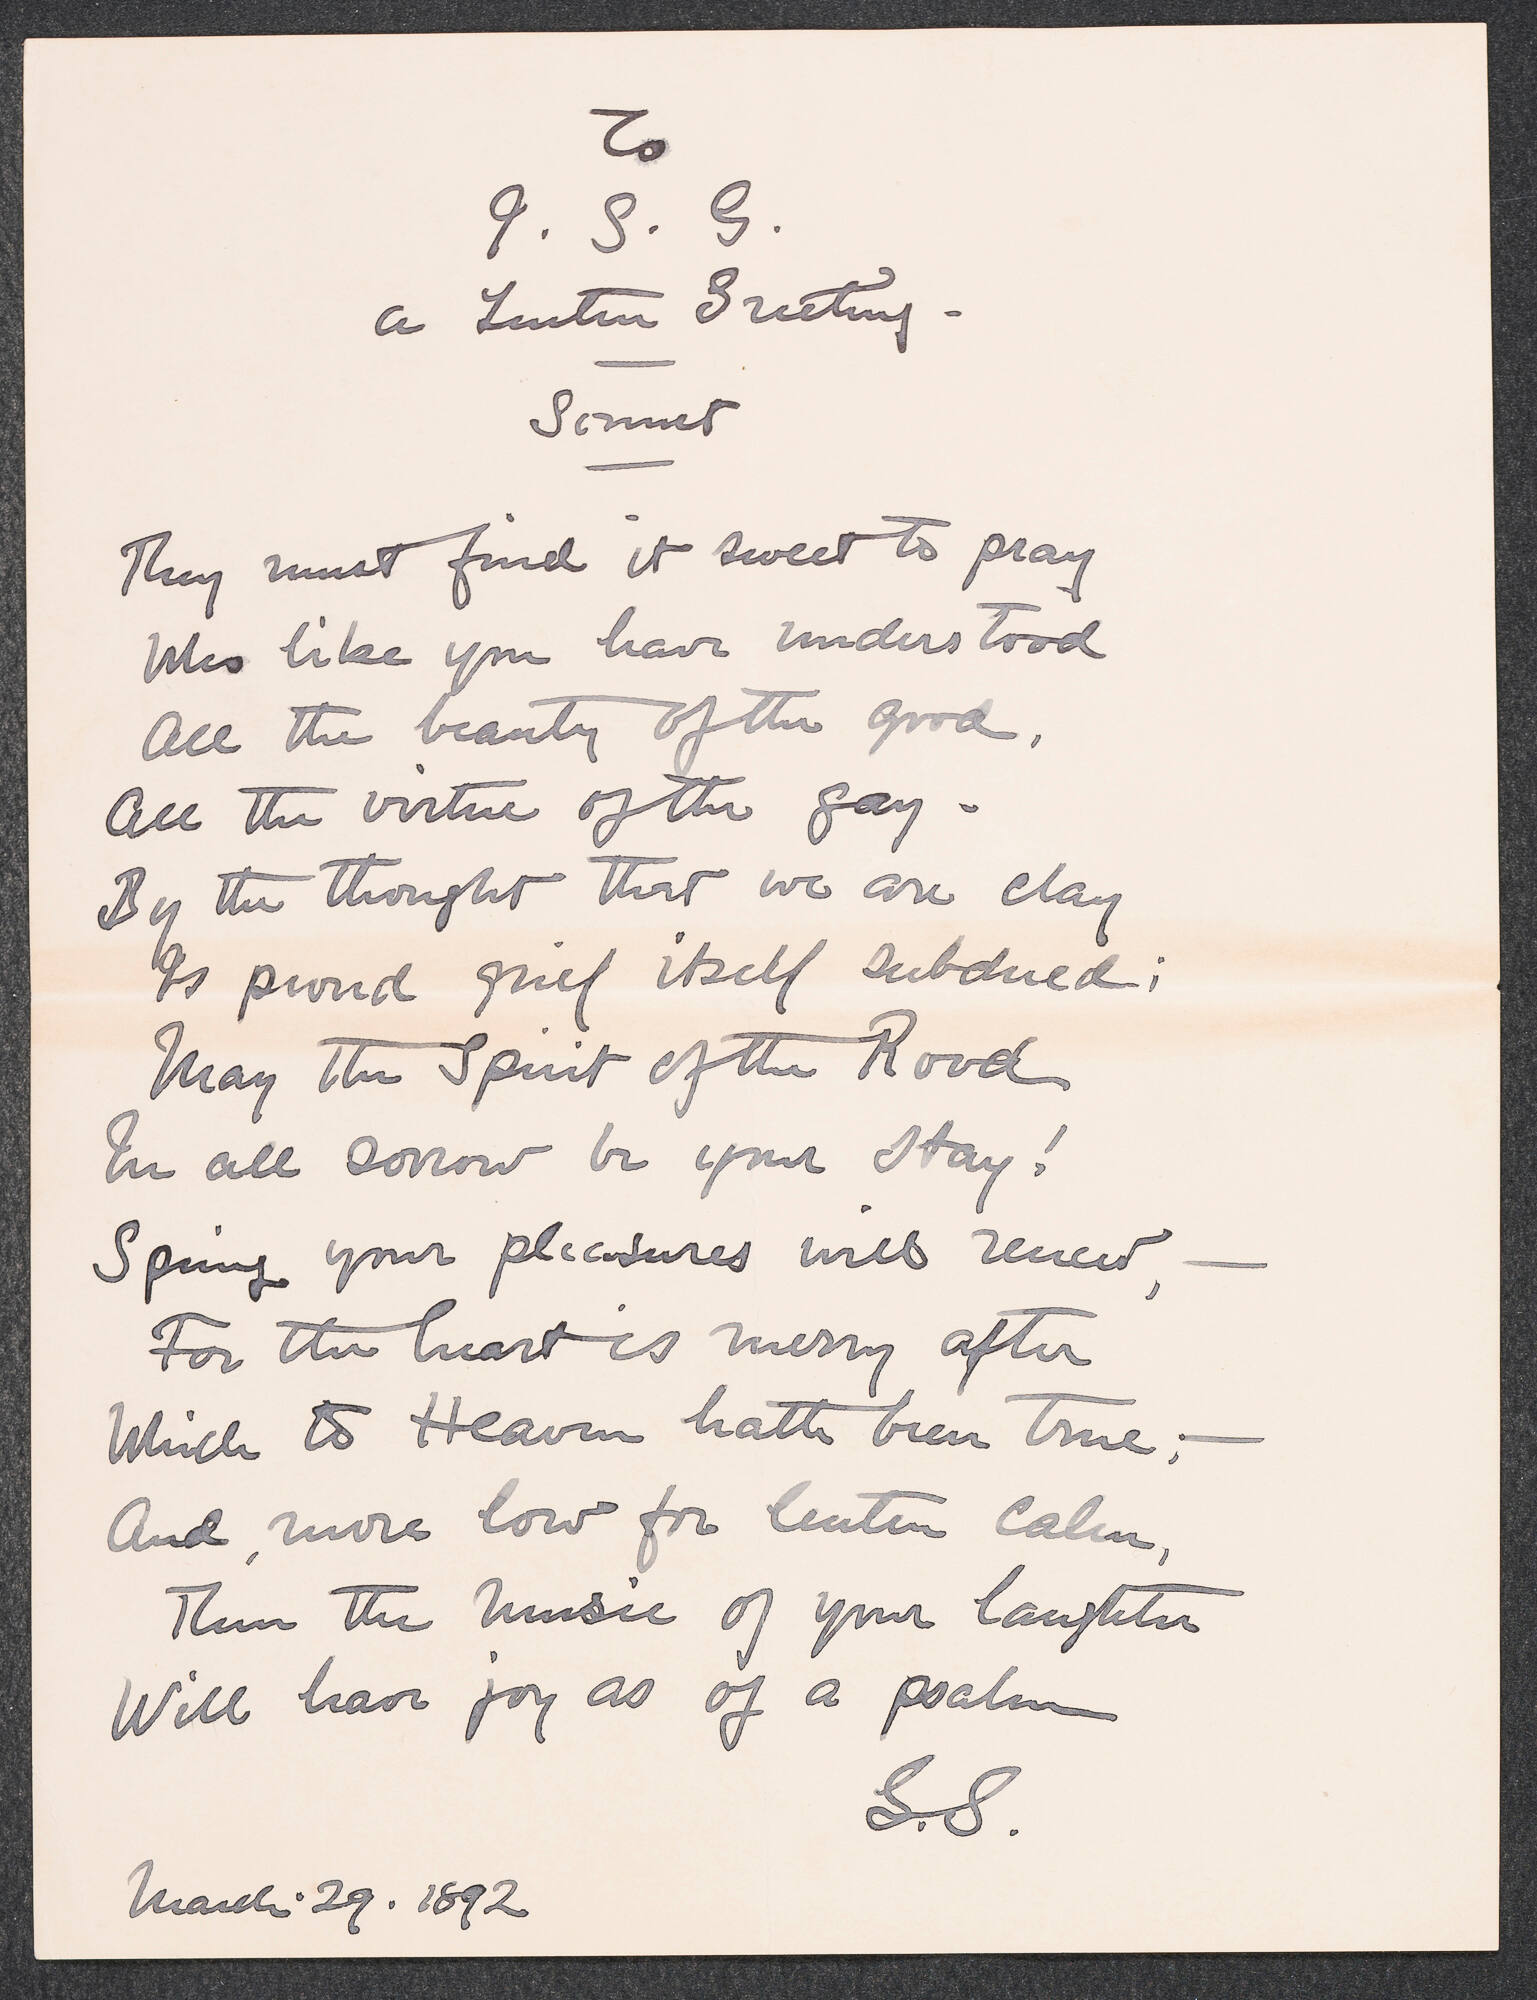 To
I. S. G.
a Lenten Greeting -
Sonnet
They must find it sweet to pray
Who like you have understood
All the beauty of the good,
All the virtue of the gay -
By the thought that we are clay
Is proud grief itself subdued;
May the Spirit of the Rood
In all sorrow be your stay!
Spring your pleasures will renew, —
For the heart is merry after
Which to Heaven hath been true; —
And, more low for lenten calm,
Then the music of your laughter
Will have joy as of a psalm
G.S.
March. 29. 1892